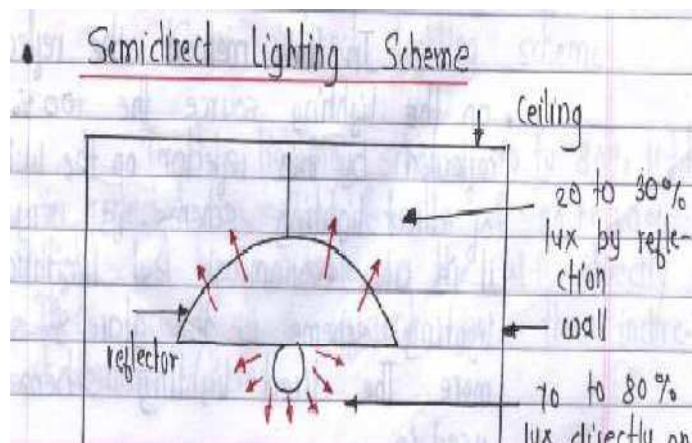 Semidirect Lighting Scheme
Ceiling
20 to 30%
lux by refle-
ction
wall
reflector
70 to 80%
lux directly on